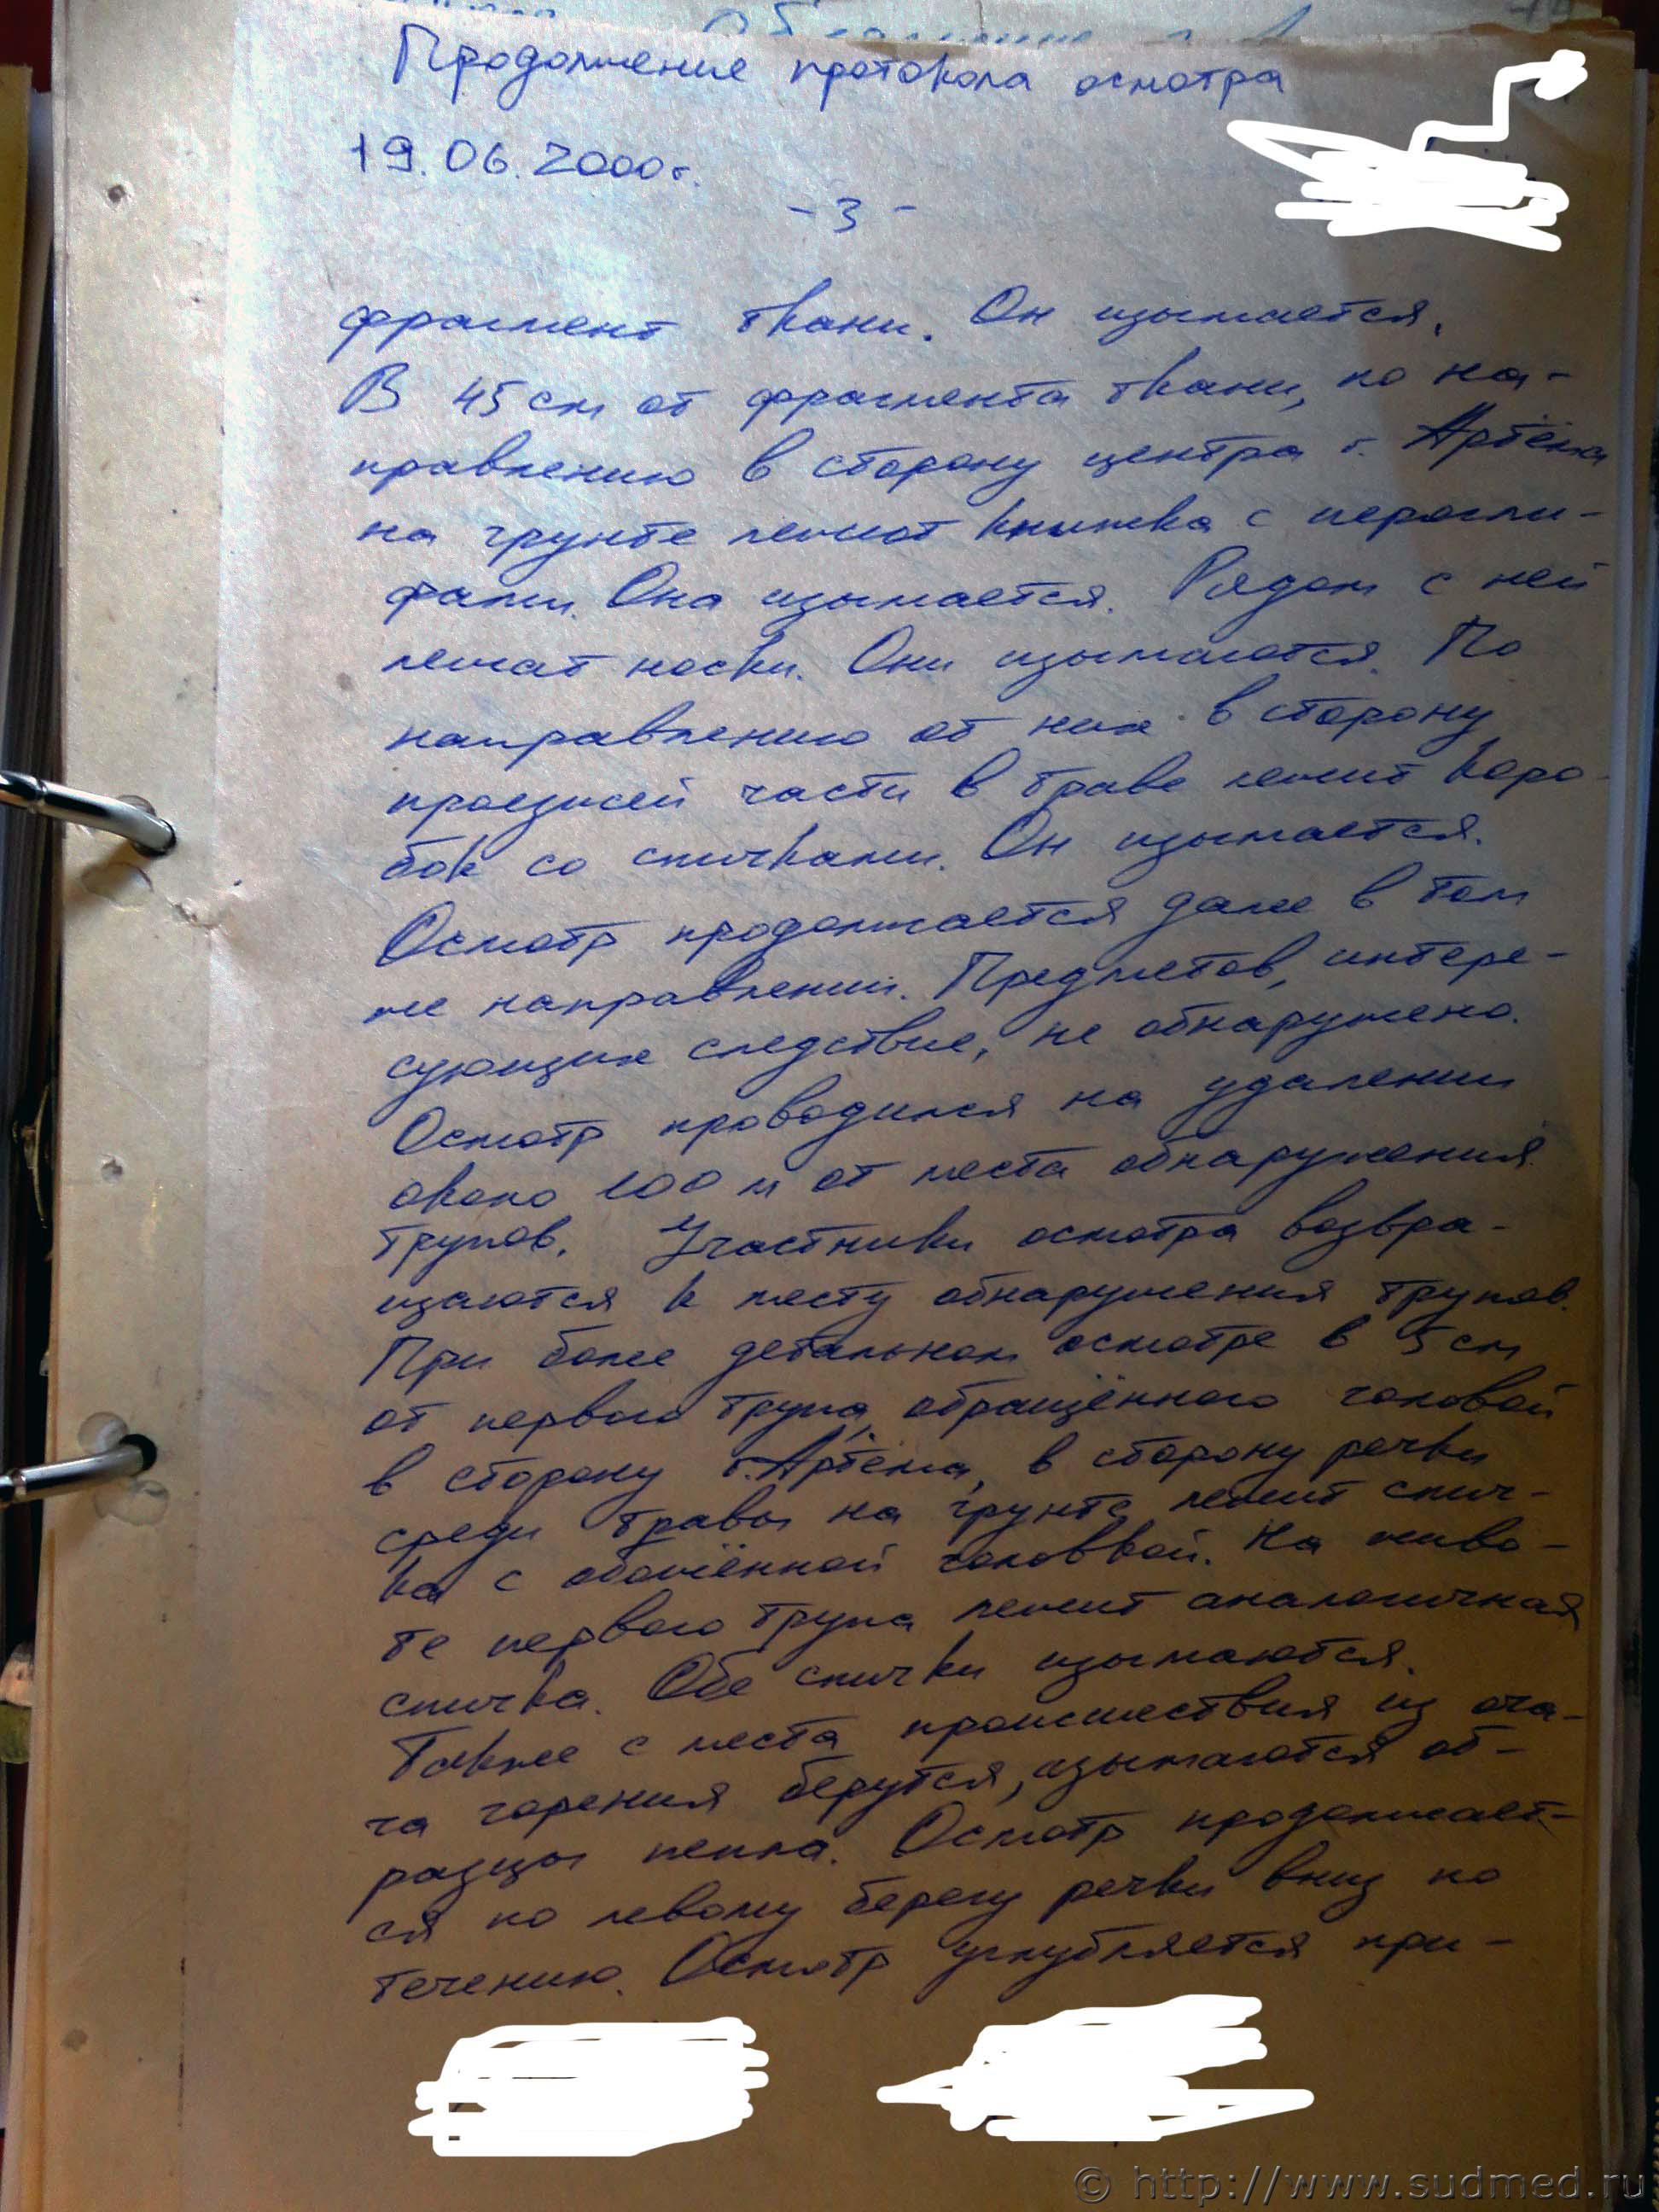 Продолжение протокола осмотра
19.06.2000г.
- 3 -
фрагмент ткани. Он изымается.
В 45 см от фрагмента ткани, по на-
правлению в сторону центра г. Артёма
на грунте лежит книжка с иерогли-
фами. Она изымается. Рядом с ней
лежат носки. Они изымаются. По
направлению от них в сторону
проезжей части в траве лежит коро-
бок со спичками. Он изымается.
Осмотр продолжается далее в том
же направлении. Предметов, интере-
сующих следствие, не обнаружено.
Осмотр проводился на удалении
около 100 м от места обнаружения
трупов. Участники осмотра возвра-
щаются к месту обнаружения трупов.
При более детальном осмотре в 5 см
от первого трупа, обращённого головой
в сторону г. Артёма, в сторону речки
среди травы на грунте лежит спич-
ка с обожжённой головкой. На живо-
те первого трупа лежит аналогичная
спичка. Обе спички изымаются.
Также с места происшествия из оча-
га горения берутся, изымаются об-
разцы пепла. Осмотр продолжает-
ся по левому берегу речки вниз по
течению. Осмотр углубляется при-
© http://www.sudmed.ru